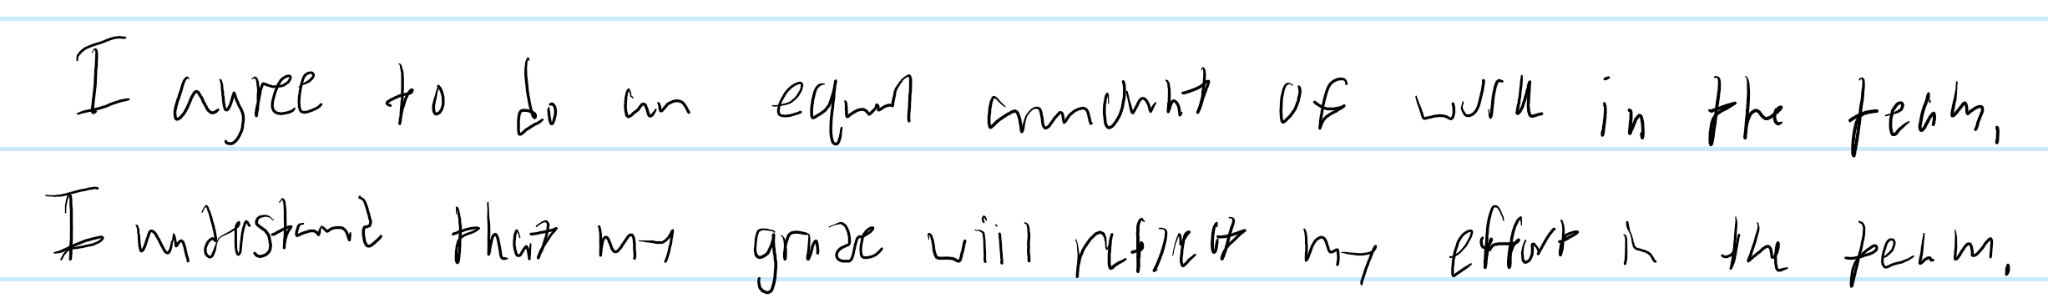 I agree to do an equal amount of work in the team.
I understand that my grade will reflect my effort in the team.